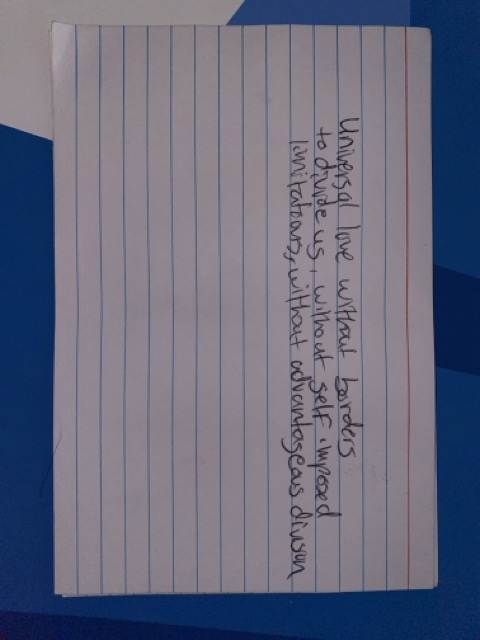 Universal love without borders
to divide us, without self imposed
limitations, without advantageous division